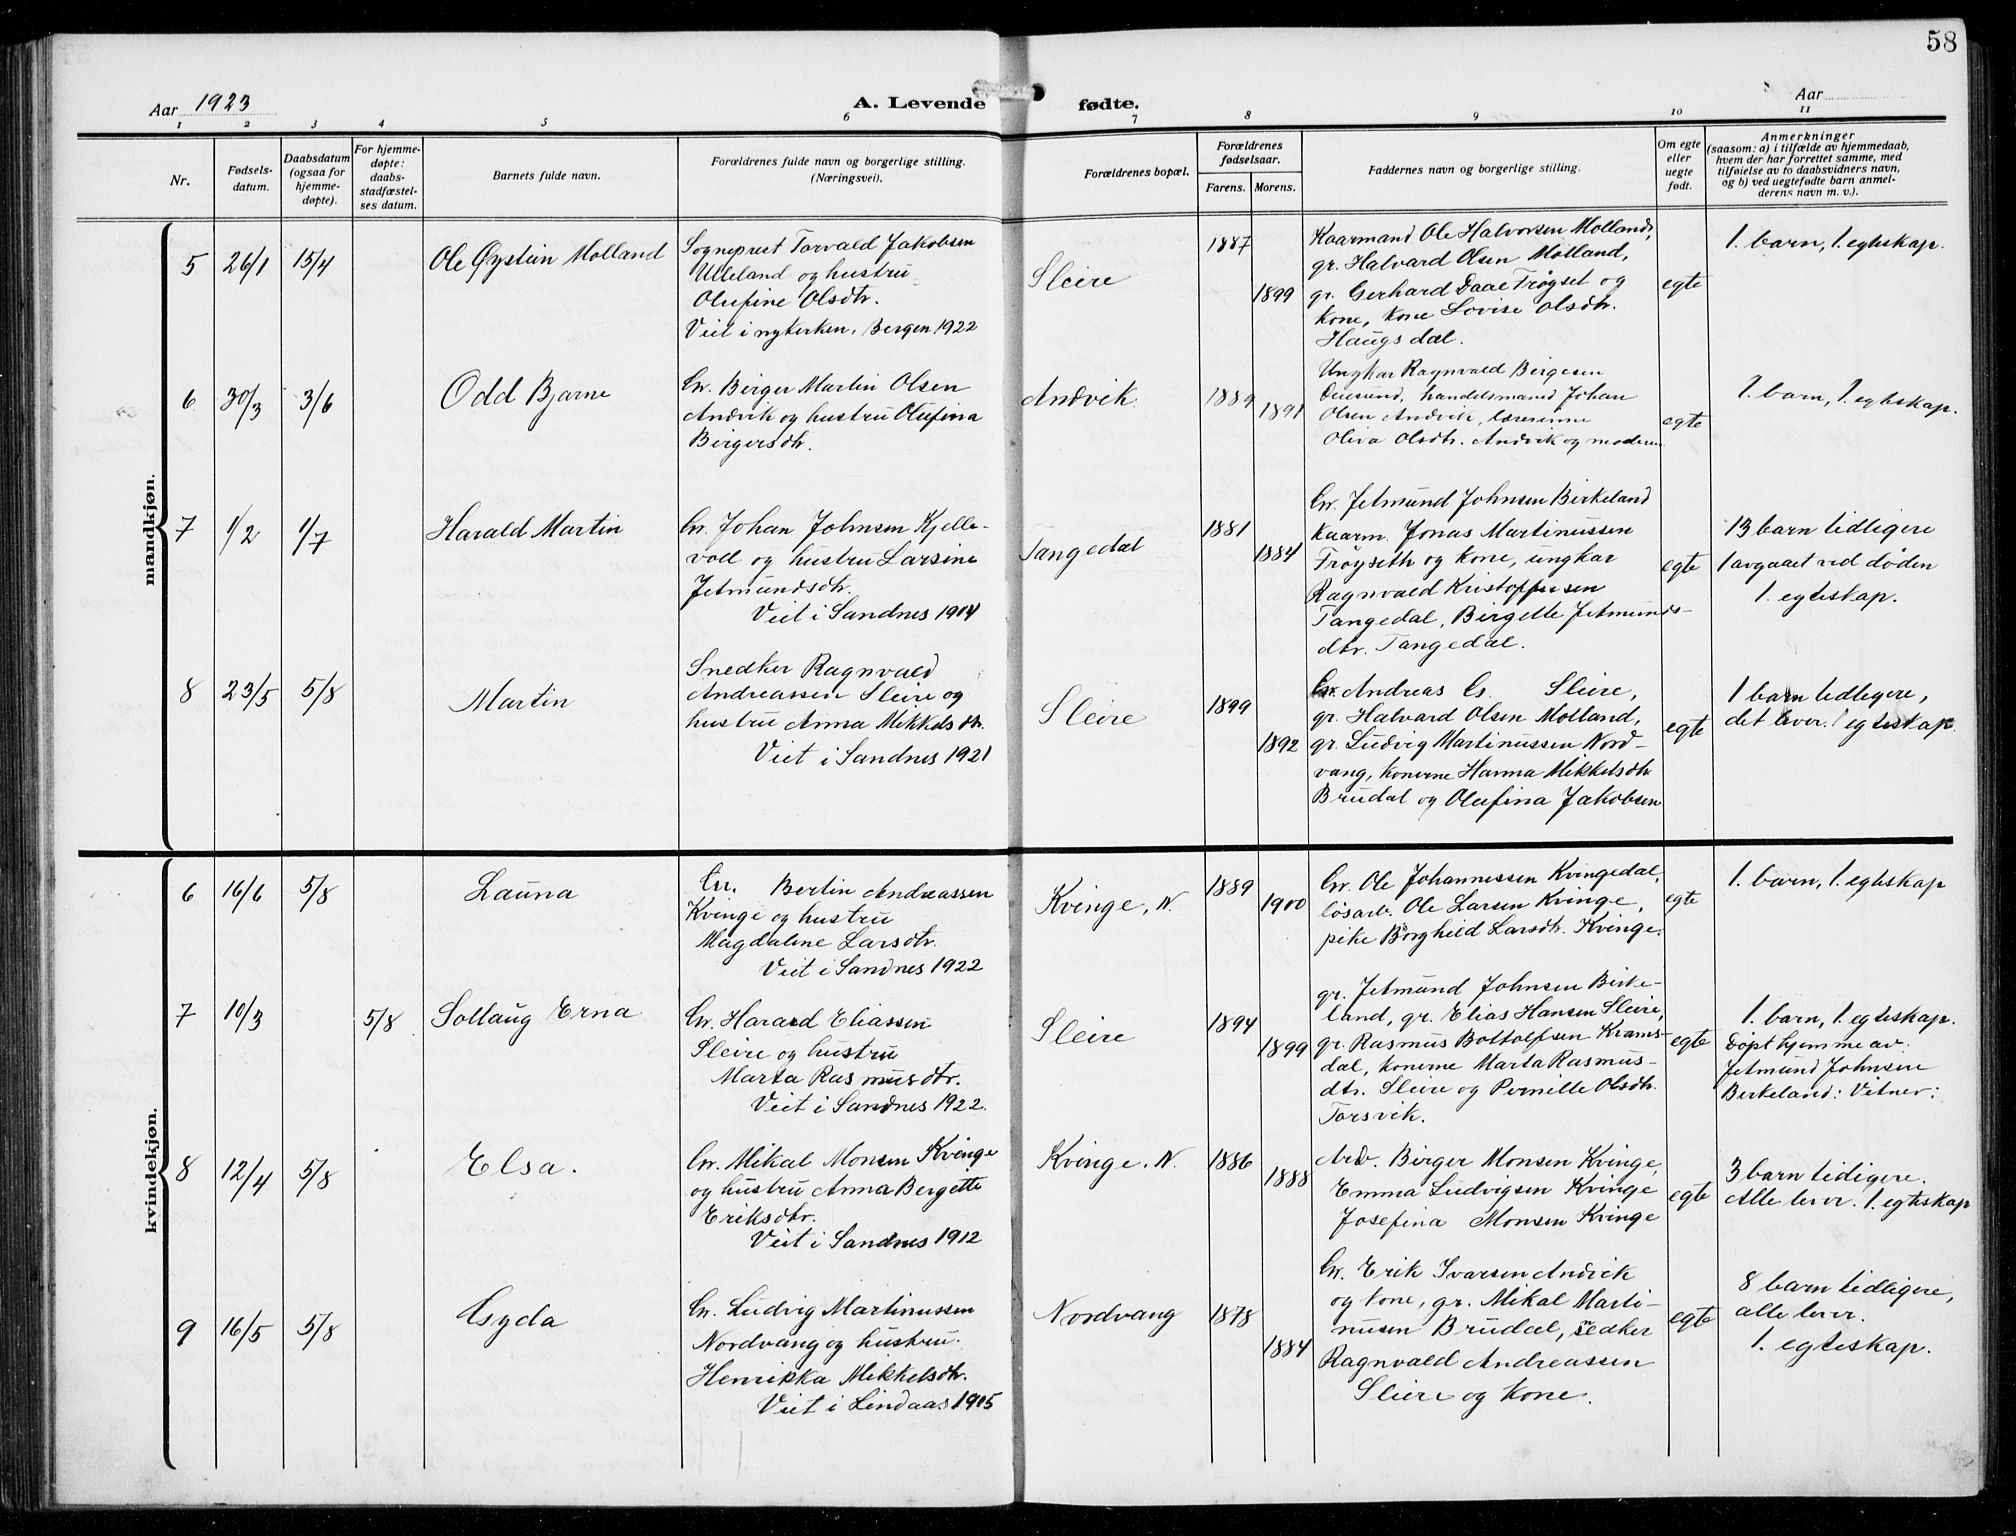 58
Aar 1923
A. Levende fødte.
Aar
1 2 3 4 5 6 7 8 9 10 11
Nr.
Fødsels-
datum.
Daabsdatum
(ogsaa for
hjemme-
døpte).
For hjemme-
døpte:
daabs-
stadfæstel-
ses datum.
Barnets fulde navn.
Forældrenes fulde navn og borgerlige stilling.
(Næringsvei).
Forældrenes bopæl.
Forældrenes
fødselsaar.
Farens. Morens.
Faddernes navn og borgerlige stilling.
Om egte
eller
uegte
født.
Anmerkninger
(saasom: a) i tilfælde av hjemmedaab,
hvem der har forrettet samme, med
tilføielse av to daabsvidners navn,
og b) ved uegtefødte barn anmel-
derens navn m. v.).
mandkjøn.
5 26/1 15/4
Ole Øystein Molland
Sogneprest Torvald Jakobsen
Ulleland og hustru
Olufine Olsdtr.
Viet i nykirken, Bergen 1922
Sleire
1887
1899
Kaarmand Ole Halvorsen Molland,
gr. Halvard Olsen Molland,
gr. Gerhard Daae Frøyset og
kone, kone Lovise Olsdtr.
Haugsdal.
egte
1. barn, 1. egteskap.
6 30/3 3/6
Odd Bjarne
Gr. Birger Martin Olsen
Andvik og hustru Olufina
Birgersdtr.
Andvik
1889
1891
Ungkar Ragnvald Birgesen
handelsmand Johan
Olsen Andvik, lærerinne
Oliva Olsdtr. Andvik og moderen
egte
1. barn, 1. egteskap.
7 1/2 1/7
Harald Martin
Gr. Johan Johnsen Kjelle-
vold og hustru Larsine
Jetmundsdtr.
Viet i Sandnes 1904
Tangedal
1881
1884
Gr. Jetmund Johnsen Birkeland
kaarm. Jonas Martinussen
Frøyseth og kone, ungkar
Ragnvald Kristoffersen
Tangedal, Birgette Jetmunds-
dtr. Tangedal.
egte
13 barn tidligere
1 avgaaet ved døden
1. egteskap.
8 23/5 5/8
Martin
Snedker Ragnvald
Andreassen Sleire og
hustru Anna Mikkelsdtr.
Viet i Sandnes 1921
Sleire
1899
1892
Gr. Andreas G. Sleire,
gr. Halvard Olsen Molland,
gr. Ludvig Martinussen Nord-
vang, konerne Hanna Mikkelsdtr
Brudal og Olufina Jakobsen
egte
1 barn tidligere,
det lever. 1 egteskap.
kvindekjøn.
6 16/6 5/8
Launa
Gr. Bertin Andreassen
Kvinge og hustru
Magdalene Larsdtr.
Viet i Sandnes 1922
Kvinge, N.
1889
1900
Gr. Ole Johannessen Kvingedal,
løsarb. Ole Larsen Kvinge,
pike Borghild Larsdtr. Kvinge.
egte
1. barn, 1. egteskap
7 10/3 5/8
Sollaug Erna
Gr. Harald Eliassen
Sleire og hustru
Marta Rasmusdtr.
Viet i Sandnes 1922.
Sleire
1894
1899
gr. Jetmund Johnsen Birke-
land, gr. Elias Hansen Sleire,
gr. Rasmus Bottolfsen Krams-
dal, konerne Marta Rasmus-
dtr. Sleire og Pernille Olsdtr.
Torsvik.
egte
1. barn, 1. egteskap.
Døpt hjemme av
Jetmund Johnsen
Birkeland: Vitner:
8 12/4 5/8
Elsa.
Gr. Mikal Monsen Kvinge
og hustru Anna Bergette
Eriksdtr.
Viet i Sandnes 1912
Kvinge, N.
1886
1888
Arb. Birger Monsen Kvinge,
Emma Ludvigsen Kvinge
Josefina Monsen Kvinge
egte
3 barn tidligere.
Alle lever. 1. egteskap
9 16/5 5/8
Gyda
Gr. Ludvig Martinussen
Nordvang og hustru
Henrikka Mikkelsdtr.
Viet i Lindaas 1905
Nordvang
1878
1884
Gr. Erik Ivarsen Andvik
og kone, gr. Mikal Marti-
nusen Brudal, snedker
Ragnvald Andreassen
Sleire og kone.
egte
8 barn tidligere,
alle lever.
1. egteskap.